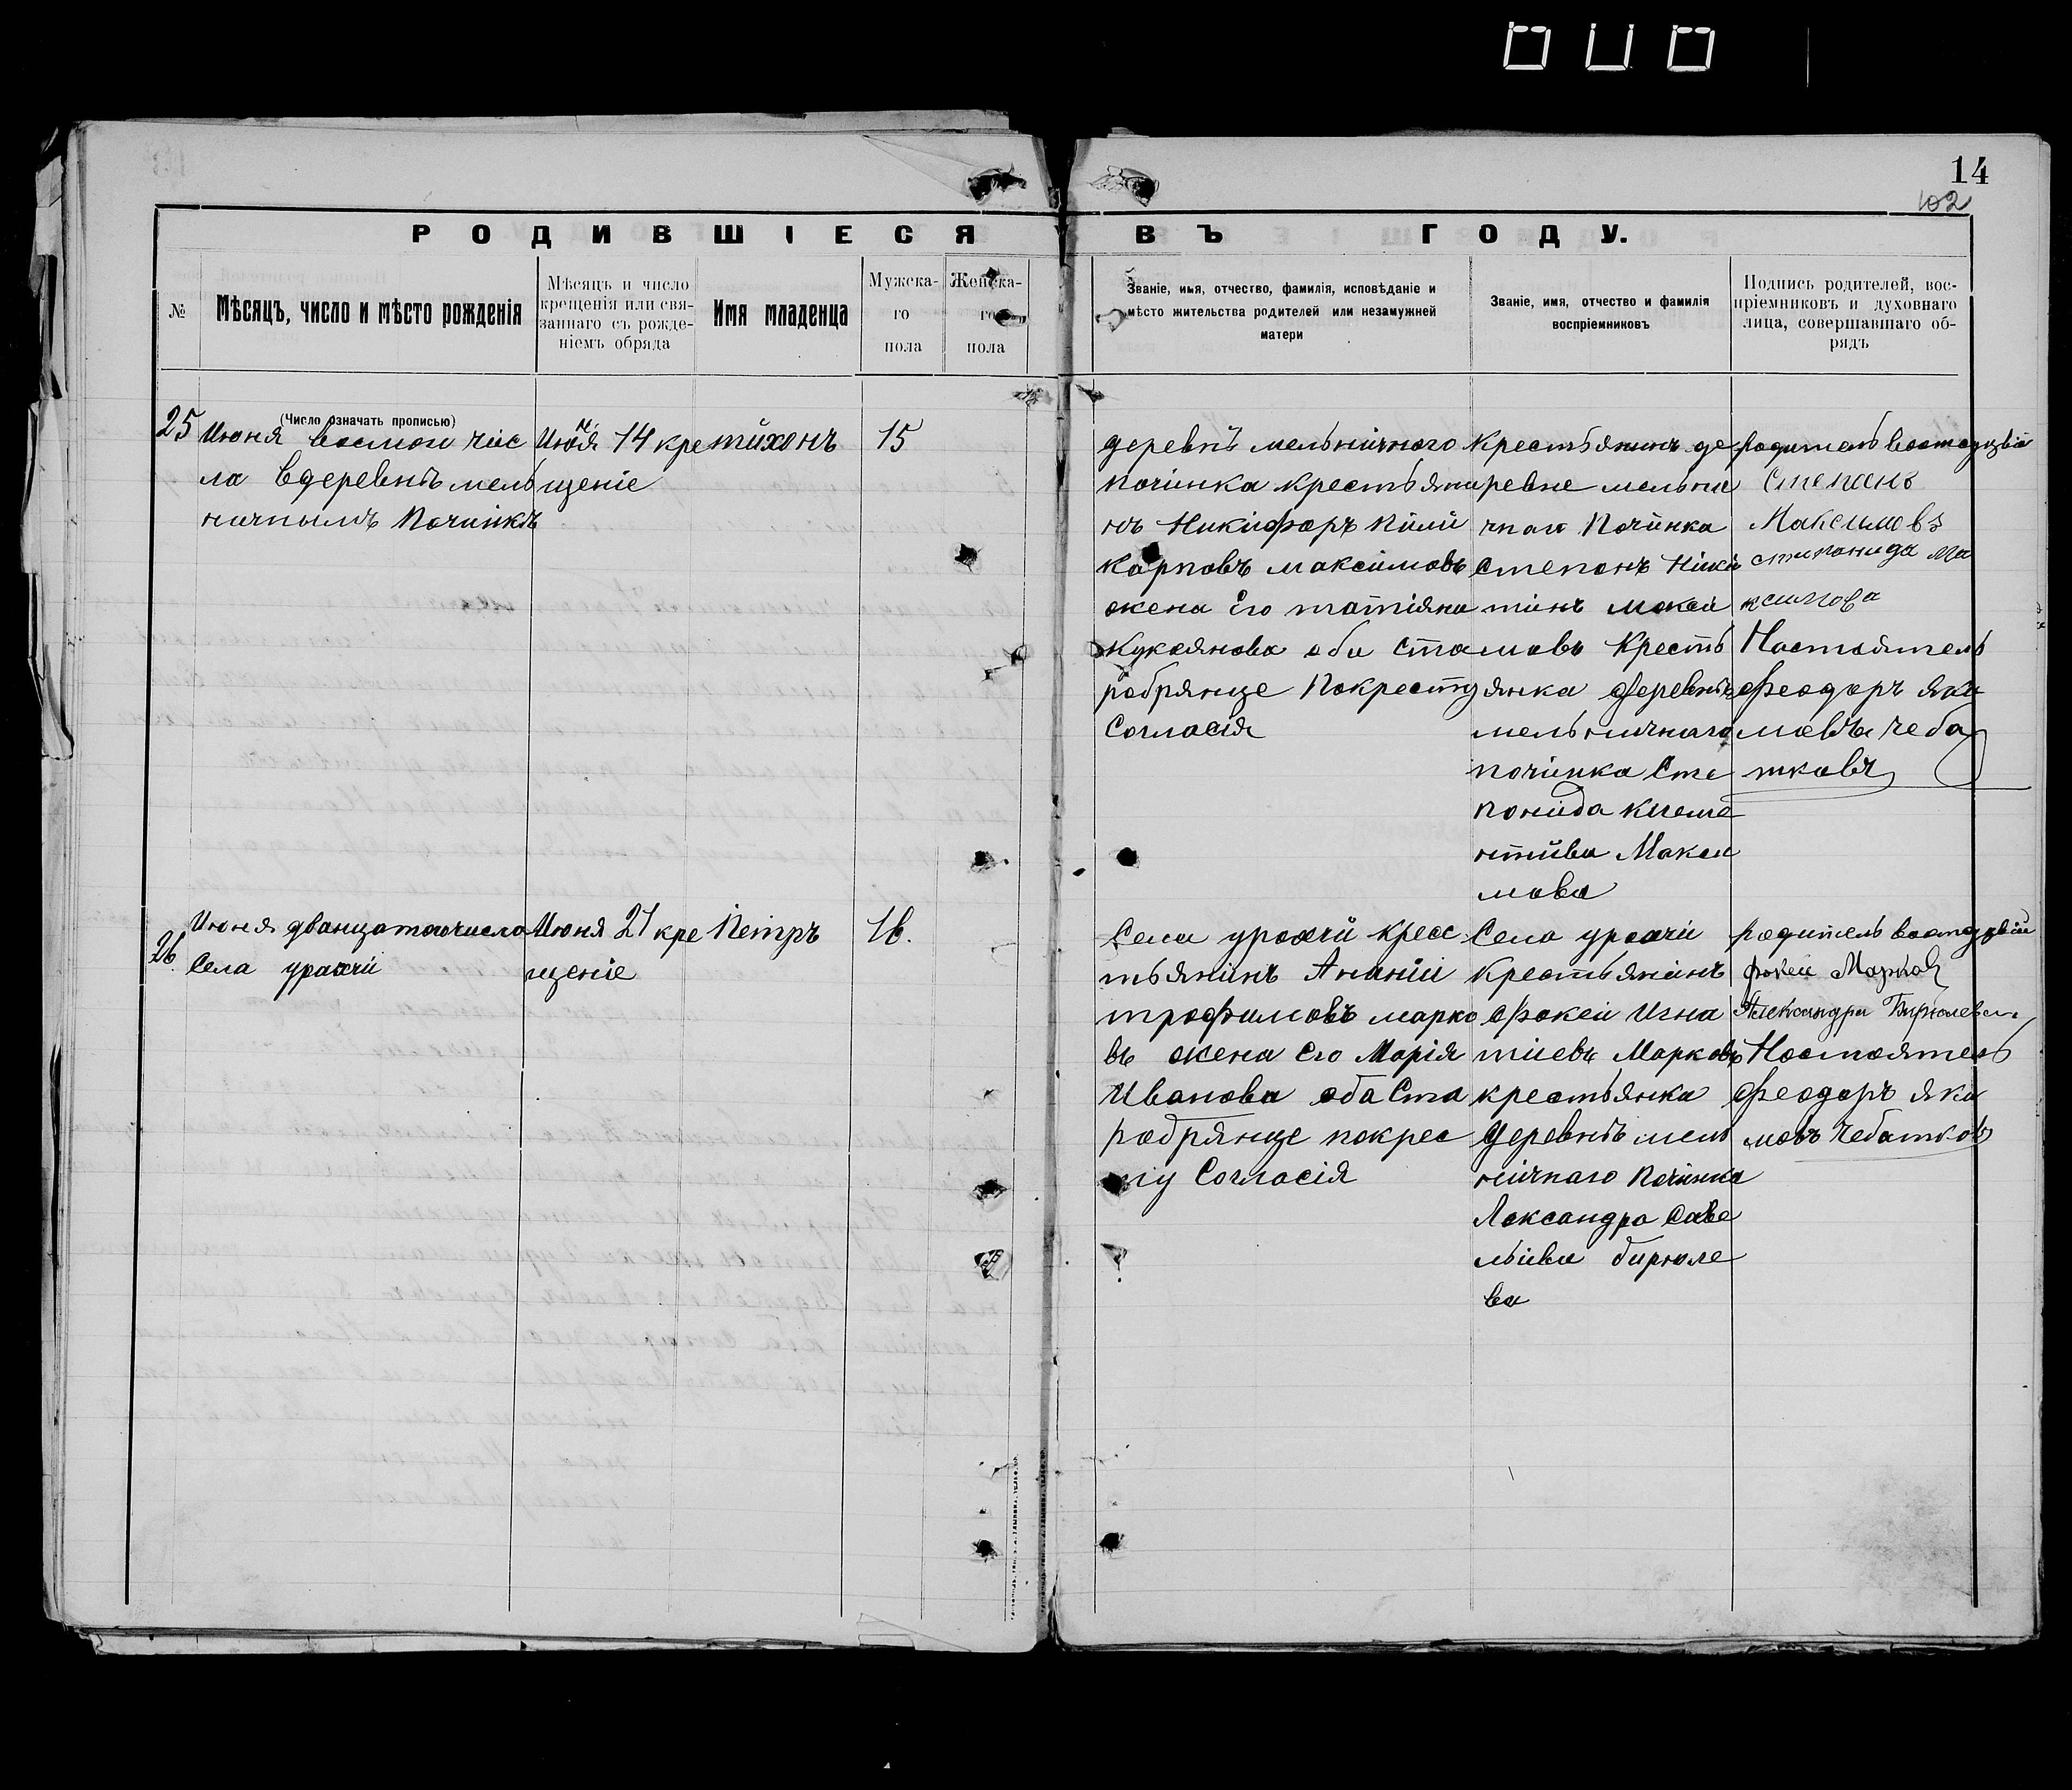 14
102
РОДИВШІЕСЯ ВЪ ГОДУ.
№
Мѣсяцъ, число и мѣсто рожденія
Мѣсяцъ и число
крещенія или свя-
заннаго съ рожде-
ніемъ обряда
Имя младенца
Мужска-
го
пола
Женска-
го
пола
Званіе, имя, отчество, фамилія, исповѣданіе и
мѣсто жительства родителей или незамужней
матери
Званіе, имя, отчество и фамилія
воспріемниковъ
Подпись родителей, вос-
пріемниковъ и духовнаго
лица, совершавшаго об-
рядъ
(Число означать прописью)
25
Июня восмои чис
ла вдеревнѣ мель
ничнымъ Починкѣ
14 кре
щеніе
тихонъ
15
деревнѣ мельничного
починка крестьяни
нъ Никифоръ
Карповъ максимовъ
жена Его татіяна
оби Ста
робрянце Покресту
Согласія
Крестьянинъ де
ревне мельни
чнои Починка
Степонъ Ники
тинъ макси
мовъ Кресть
янка деревнѣ
мельничнаго
починка Сте
понида Клеме
нтиви Макси
мова
родитель
Степанъ
Максимовъ
стипонида Ма
ксимова
Настоятель
Феодоръ яки
мовъ чеба
тковъ
26.
Июня числа
Села урахчи
Июня 21 кре
щеніе
Петръ
16.
Села урахчи крес
тьянинъ Ананіи
трофимовъ марко
въ жена его Марія
Иванова оба Ста
робрянце покрес
ту Согласія
Села урахчи
Крестьянинъ
Фокеи Игна
тиевъ Марковъ
крестьянка
Деревнѣ мель
ничнаго Починка
Лександра Саве
льиви бирюле
ва
родитель
фокеи Марков
Александра Бирюлева
Настоятель
Феодоръ яки
мовъ Чебатковъ